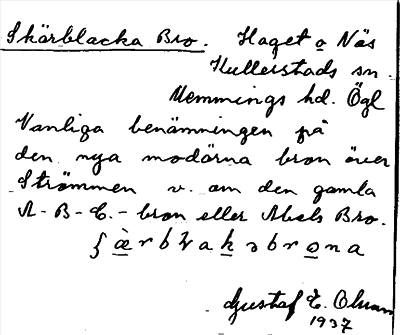 Skärblacka Bro. Haget o Näs
Kullerstads sn.
Memmings hd. Ögl
Vanliga benämningen på
den nya modärna bron över
Strömmen v. om den gamla
A-B-C.-bron eller Abels Bro.
ʃæ̱rbɫaḵəbro̱na
Gustaf E. Olsson
1937